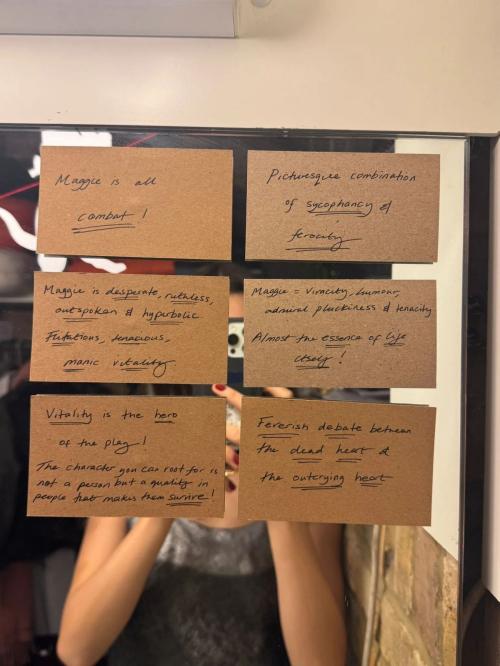 Maggie is all
combat!
Picturesque combination
of sycophancy &
ferocity
Maggie is desperate, ruthless,
outspoken & hyperbolic
Flirtatious, tenacious,
manic vitality
Maggie = vivacity, humour,
admiral pluckiness & tenacity
Almost the essence of life
itself!
Vitality is the hero
of the play!
The character you can root for is
not a person but a quality in
people that makes them survive!
Feverish debate between
the dead heart &
the outcrying heart